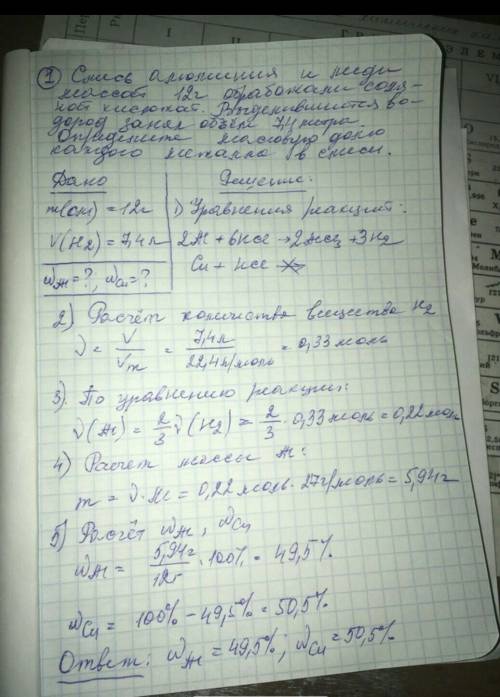 1 Смесь алюминия и меди
массой 12г обработали соля-
ной кислотой. Выделившийся во-
дород занял объём 7,4 литра.
Определите массовую долю
каждого металла в смеси.
Дано
Решение:
m(см) = 12г
1) Уравнения реакций:
V(H₂) = 7,4л
2Al + 6HCl → 2AlCl₃ + 3H₂
Cu + HCl
ωAl = ?, ωCu = ?
2) Расчёт количества вещества H₂
ν = V/Vm = 7,4л/22,4л/моль = 0,33 моль
3) По уравнению реакции:
ν(Al) = 2/3 ν(H₂) = 2/3 · 0,33 моль = 0,22 моль
4) Расчёт массы Al:
m = ν · M = 0,22 моль · 27г/моль = 5,94г
5) Расчёт ωAl, ωCu
ωAl = 5,94г/12г · 100% = 49,5%
ωCu = 100% − 49,5% = 50,5%
Ответ: ωAl = 49,5%; ωCu = 50,5%